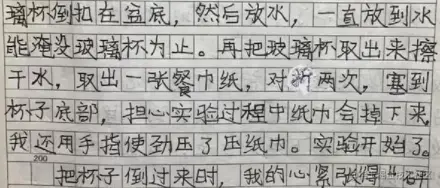 璃杯倒扣在盆底，然后放水，一直放到水
能淹没玻璃杯为止。再把玻璃杯取出来擦
干水，取出一张餐巾纸，对折两次，塞到
杯子底部，担心实验过程中纸巾会掉下来，
我还用手指使劲压了压纸巾。实验开始了。
200
把杯子倒过来时，我的心紧张得